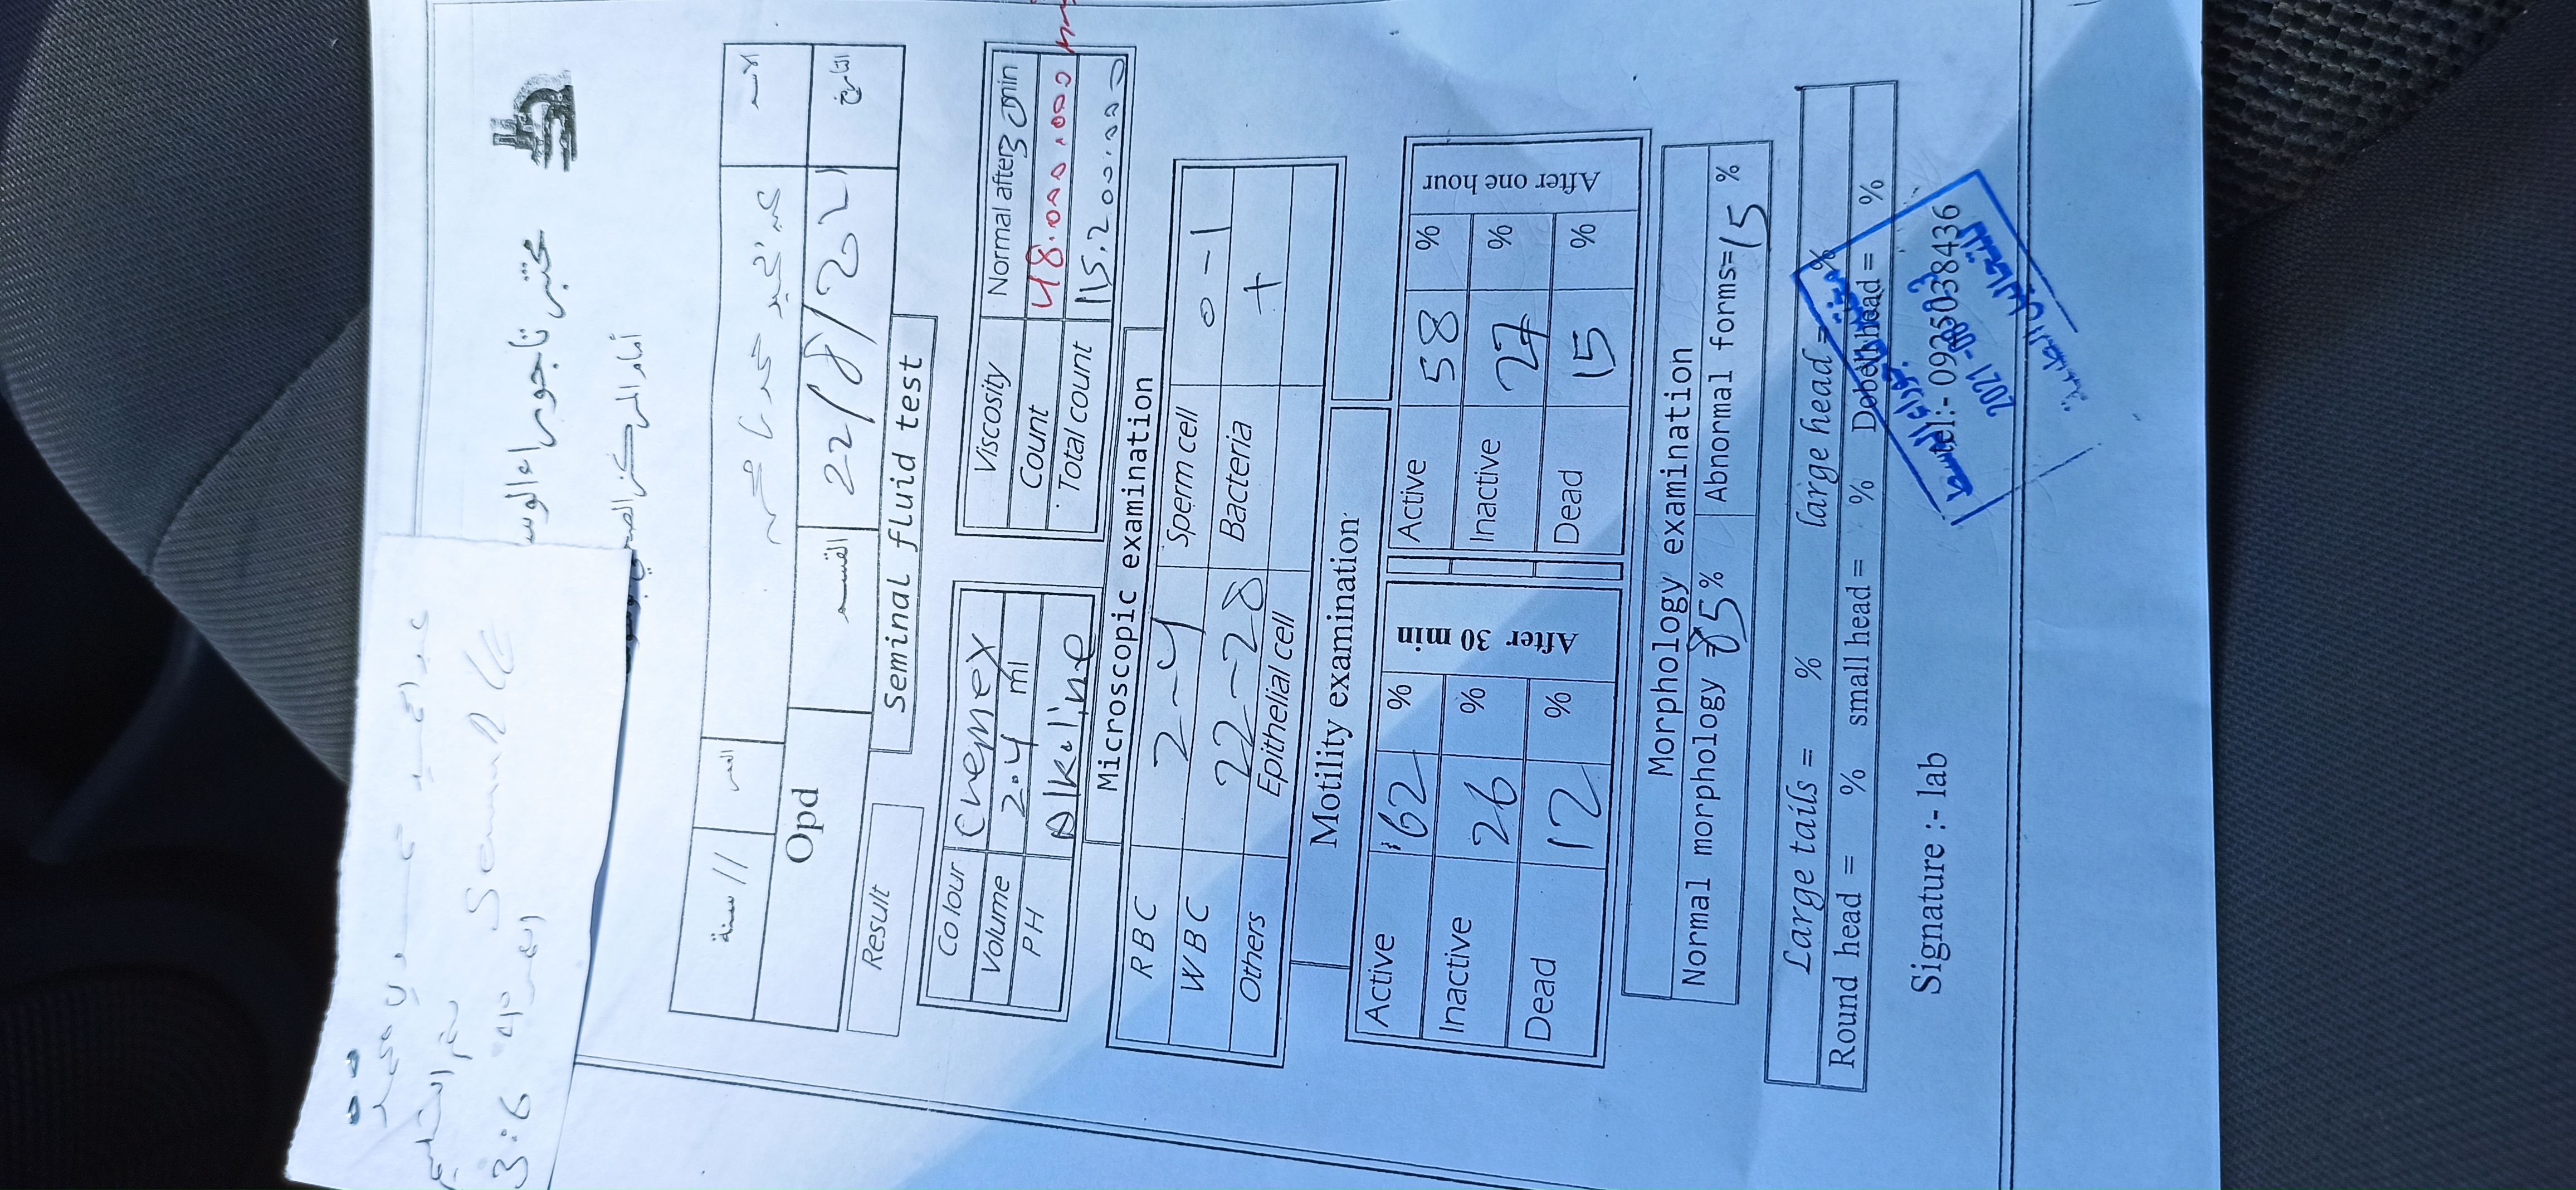 مختبر تاجوراء الوسط
أمام المركز الصحي
الاسم
العمر
// سنة
التاريخ 22/8/2021
القسم
Opd
Result
Seminal fluid test
Colour Cremex
Volume 2.4 ml
PH Alkaline
Viscosity Normal after 30 min
Count 48.000.000
Total count 115.200.000
Microscopic examination
RBC 2-4 Sperm cell 0-1
WBC 22-28 Bacteria +
Others Epithelial cell
Motility examination
Active 62 %
Inactive 26 %
Dead 12 %
After 30 min
Active 58 %
Inactive 27 %
Dead 15 %
After one hour
Morphology examination
Normal morphology = 85% Abnormal forms=15 %
Large tails = % large head = %
Round head = % small head = % Dobell head = %
Signature :- lab tel:- 0925038436
Seminal
3:6
2021